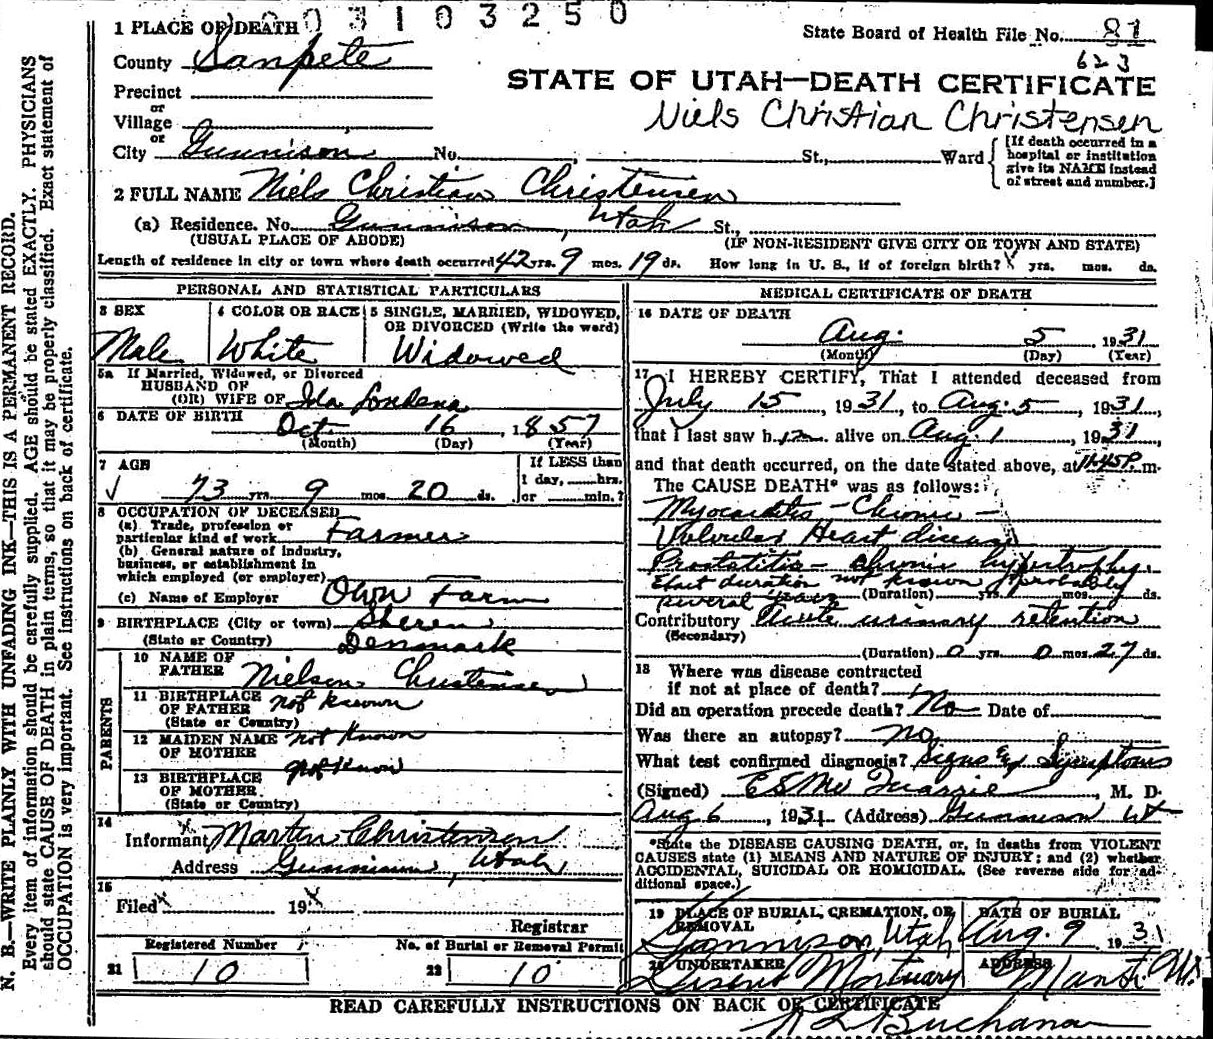 003103250
1 PLACE OF DEATH
State Board of Health File No. 81
623
County Sanpete
STATE OF UTAH—DEATH CERTIFICATE
Precinct
or
Village
Niels Christian Christensen
or
City Gunnison No. , St., Ward
[If death occurred in a hospital or institution give its NAME instead of street and number.]
2 FULL NAME Niels Christian Christensen
(a) Residence. No. Gunnison, Utah St.,
(USUAL PLACE OF ABODE) (IF NON-RESIDENT GIVE CITY OR TOWN AND STATE)
Length of residence in city or town where death occurred 42 yrs. 9 mos. 19 ds. How long in U. S., if of foreign birth? X yrs. mos. ds.
PERSONAL AND STATISTICAL PARTICULARS
3 SEX
Male
4 COLOR OR RACE
White
5 SINGLE, MARRIED, WIDOWED,
OR DIVORCED (Write the word)
Widowed
5a If Married, Widowed, or Divorced
HUSBAND OF
(OR) WIFE OF Ida
6 DATE OF BIRTH Oct 16, 1857
(Month) (Day) (Year)
7 AGE
73 yrs. 9 mos. 20 ds.
If LESS than
1 day, hrs.
or min.?
8 OCCUPATION OF DECEASED
(a) Trade, profession or
particular kind of work Farmer
(b) General nature of industry,
business, or establishment in
which employed (or employer)
(c) Name of Employer Own Farm
9 BIRTHPLACE (City or town)
(State or Country) Denmark
PARENTS
10 NAME OF
FATHER Nielsen Christensen
11 BIRTHPLACE
OF FATHER not known
(State or Country)
12 MAIDEN NAME
OF MOTHER not known
13 BIRTHPLACE
OF MOTHER not know
(State or Country)
14
Informant Marten Christensen
Address Gunnison, Utah
15
Filed X 19 X
Registrar
Registered Number
21 10
No. of Burial or Removal Permit
22 10
MEDICAL CERTIFICATE OF DEATH
16 DATE OF DEATH
Aug. 5, 1931
(Month) (Day) (Year)
17 I HEREBY CERTIFY, That I attended deceased from
July 15, 1931, to Aug. 5, 1931,
that I last saw him alive on Aug. 1, 1931,
and that death occurred, on the date stated above, at 11:45 P. m.
The CAUSE DEATH* was as follows:
Myocarditis - Chronic -
Valvular Heart disease
Prostatitis - chronic hypertrophy.
Exact duration not known probably
several years (Duration) yrs. mos. ds.
Contributory Acute urinary retention
(Secondary)
(Duration) 0 yrs. 0 mos. 27 ds.
18 Where was disease contracted
if not at place of death?
Did an operation precede death? No Date of
Was there an autopsy? no
What test confirmed diagnosis? Signs & Symptoms
(Signed) , M. D.
Aug 6, 1931 (Address) Gunnison Ut
*State the DISEASE CAUSING DEATH, or, in deaths from VIOLENT
CAUSES state (1) MEANS AND NATURE OF INJURY; and (2) whether
ACCIDENTAL, SUICIDAL OR HOMICIDAL. (See reverse side for ad-
ditional space.)
19 PLACE OF BURIAL, CREMATION, OR
REMOVAL
Gunnison, Utah
DATE OF BURIAL
Aug. 9 1931
20 UNDERTAKER
Mortuary
ADDRESS
Manti Ut.
READ CAREFULLY INSTRUCTIONS ON BACK OF CERTIFICATE
Buchanan
N. B.—WRITE PLAINLY WITH UNFADING INK—THIS IS A PERMANENT RECORD.
Every item of information should be carefully supplied. AGE should be stated EXACTLY. PHYSICIANS
should state CAUSE OF DEATH in plain terms, so that it may be properly classified. Exact statement of
OCCUPATION is very important. See instructions on back of certificate.